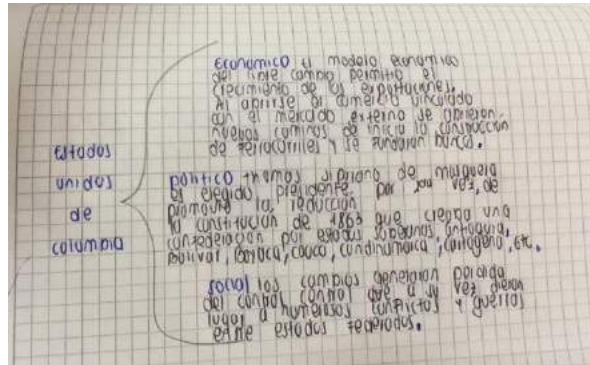 estados
unidos
de
columbia
Economico El modelo economico
del libre cambio permitio el
crecimiento de las exportaciones.
Al abrirse al comercio vinculado
con el mercado externo se abrieron
nuevos caminos se inicia la construccion
de ferrocarriles y se fundaron bancos.
politico thomas cipriano de mosquera
es elegido presidente por
promovio la redaccion
la constitucion de 1863 que creaba una
confederacion por estados soberanos antioquia,
bolivar, boyaca, cauca, cundinamarca, etc.
social los cambios generaron perdida
del control que a su vez dieron
lugar a numerosos conflictos y guerras
entre estados federados.